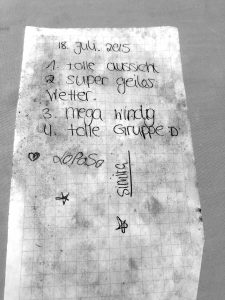 18. Juli. 2015
1. tolle aussicht
2. super geiles
Wetter.
3. mega windig
4. tolle Gruppe :D